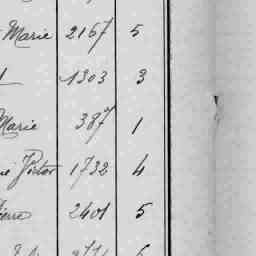 Marie 2167 5
1303 3
Marie 387 1
Victor 1732 4
Pierre 2401 5